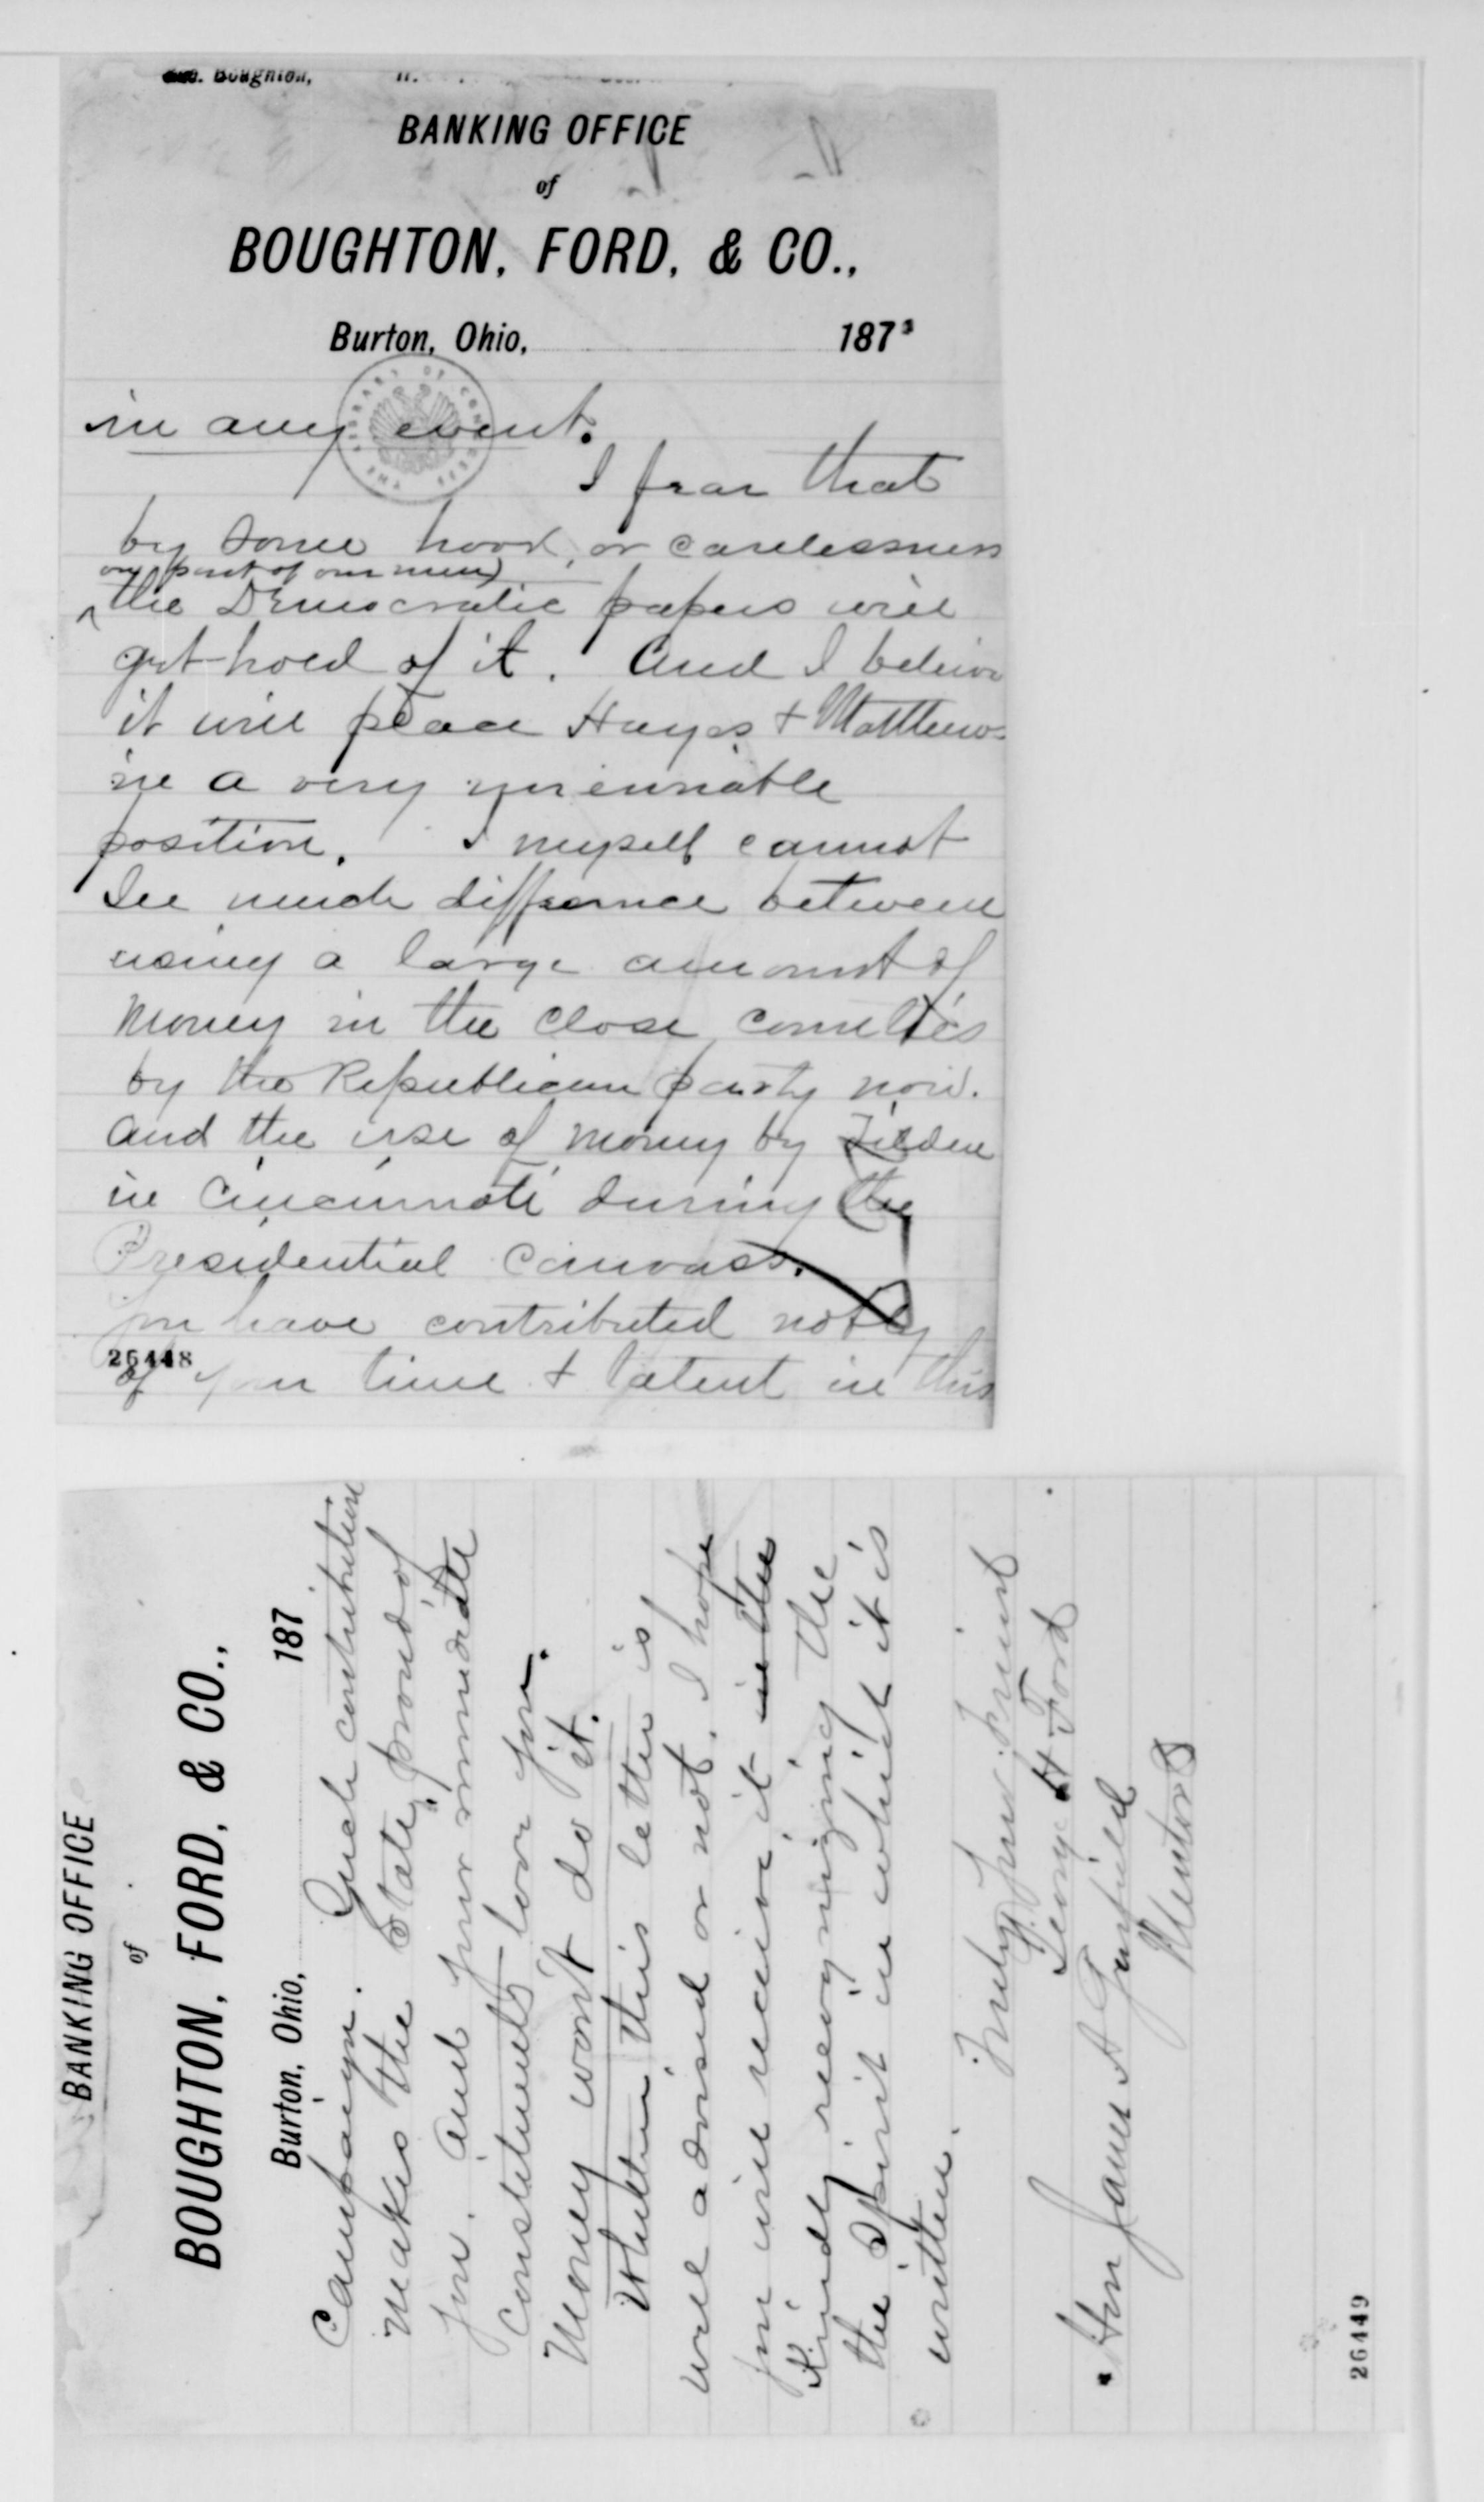 Geo. Boughton,
BANKING OFFICE
of
BOUGHTON, FORD, & CO.,
Burton, Ohio, 187
in any event.
I fear that
by some hook, or carelessness
on part of our men)
the Democratic papers will
get hold of it. And I believe
it will place Hayes & Matthews
in a very unenviable
position. I myself cannot
See much difference between
using a large amount of
money in the close counties
by the Republican party now.
and the use of money by Tilden
in Cincinnati during the
Presidential canvass.
You have contributed nobly
of your time & talent in this
26448
BANKING OFFICE
of
BOUGHTON, FORD, & CO.,
Burton, Ohio, 187
Campaign. Such contribution
makes the State, proud of
you. And your immediate
constituents love you.
Money won't do it.
Whether this letter is
well advised or not, I hope
you will receive it in the
Kindly recognizing the
the Spirit in which it is
written.
Truly Your Friend
George H Ford
Hon James A Garfield
Mentor O
26449
THE LIBRARY OF CONGRESS